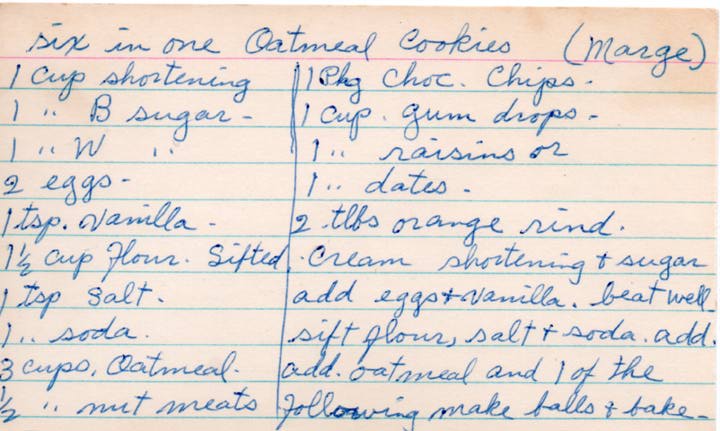 six in one Oatmeal Cookies (Marge)
1 Cup shortening
1 " B sugar -
1 " W "
2 eggs -
1 tsp. Vanilla -
1 1/2 cup Flour. Sifted
1 tsp Salt.
1 " soda.
3 cups. Oatmeal.
1/2 " nut meats
1 Pkg Choc. Chips -
1 Cup. gum drops -
1 " raisins or
1 " dates -
2 tlbs orange rind.
. Cream shortening + sugar
add eggs + Vanilla. beat well
sift flour, salt + soda. add.
add. oatmeal and 1 of the
following make balls + bake -